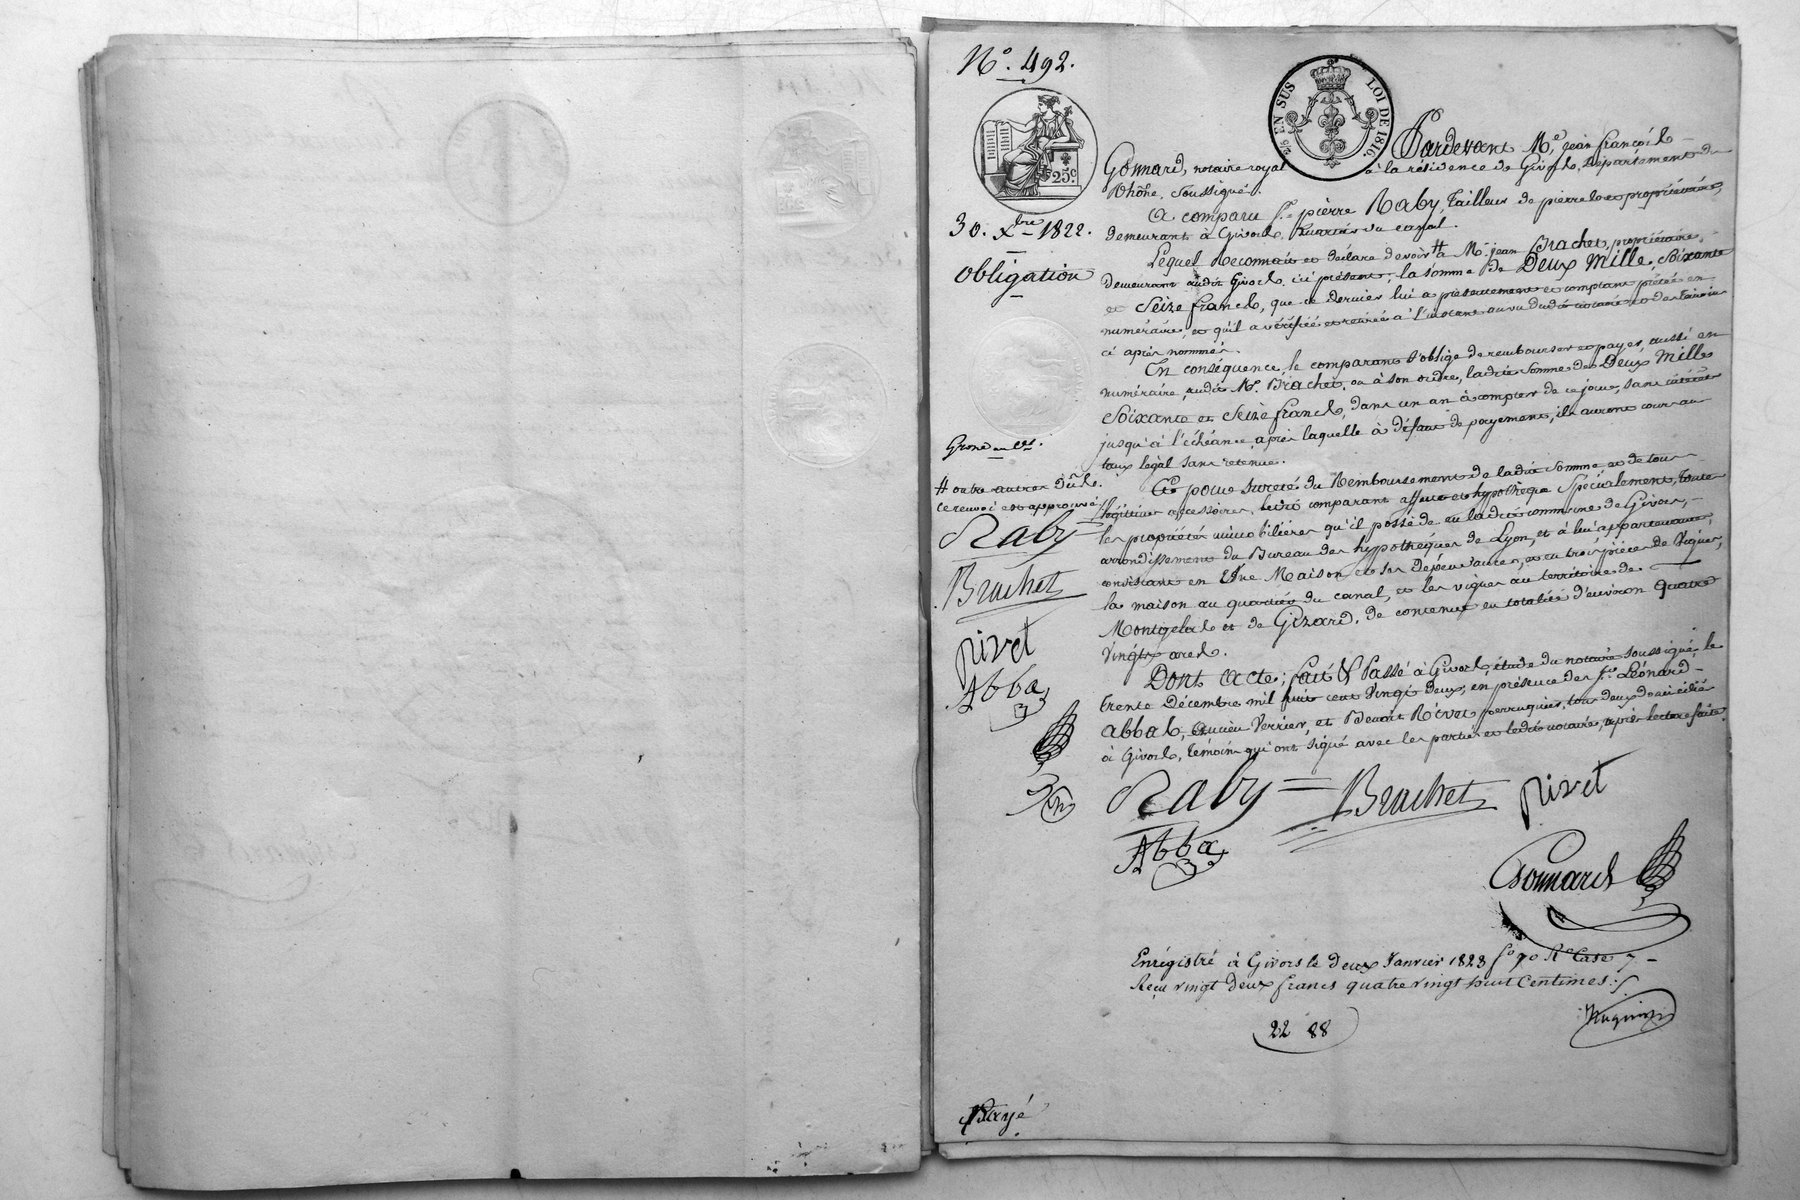 N.o 492.
25 EN SUS LOI DE 1816.
25c
30. Xbre 1822.
Obligation
Pardevant Me jean françois
Gonnard, notaire royal à la résidence de Givors, Département du
Rhône, Soussigné.
A comparu Sr pierre Raby, Tailleur de pierre et propriétaire,
demeurant à Givors, quartier du canal.
Lequel Reconnait et déclare devoir # à Mr jean Brachet, propriétaire,
demeurant audit Givors, ici présent, la somme de Deux Mille Soixante
et Seize francs, que ce dernier lui a présentement et comptant prêtée en
numéraire, et qu'il a vérifiée et retirée à l'instant au vu dudit notaire et des témoins
ci après nommés.
En conséquence, le comparant s'oblige de rembourser et payer, aussi en
numéraire, audit Mr Brachet, ou à son ordre, ladite somme de Deux Mille
Soixante et Seize francs, dans un an à compter de ce jour, sans intérêt
jusqu'à l'échéance après laquelle à défaut de payement, ils auront cours au
taux légal sans retenue.
Et pour sureté du Remboursement de ladite somme et de tous
légitimes accessoires, ledit comparant affecte et hypothèque Spécialement, toutes
les propriétés immobilières qu'il possède en ladite commune de Givors,
arrondissement du Bureau des hypothèques de Lyon, et à lui appartenantes,
consistant en Une Maison et ses dépendances, et en trois pièces de Vignes,
la maison au quartier du canal, et les vignes au territoire de
Montgelas et de Gizard, de contenue en totalité d'environ quatre
vingts ares.
Dont Acte, fait & Passé à Givors, étude du notaire soussigné, le
trente Décembre mil huit cent Vingt deux, en présence des Srs Léonard
abbal, ancien Verrier, et Benoit Rivet perruquier, tous deux domiciliés
à Givors, témoins qui ont signé avec les parties et ledit notaire, après lecture faite.
Raby Brachet rivet
Abba
Gonnard
Enrégistré à Givors le deux Janvier 1823 fo 90 Ro Case 7
Reçu vingt deux francs quatre vingt huit Centimes
22 88
Grosse en
# outre autres dûs.
Ce renvoi est approuvé
Raby
Brachet
rivet
Abba
Payé